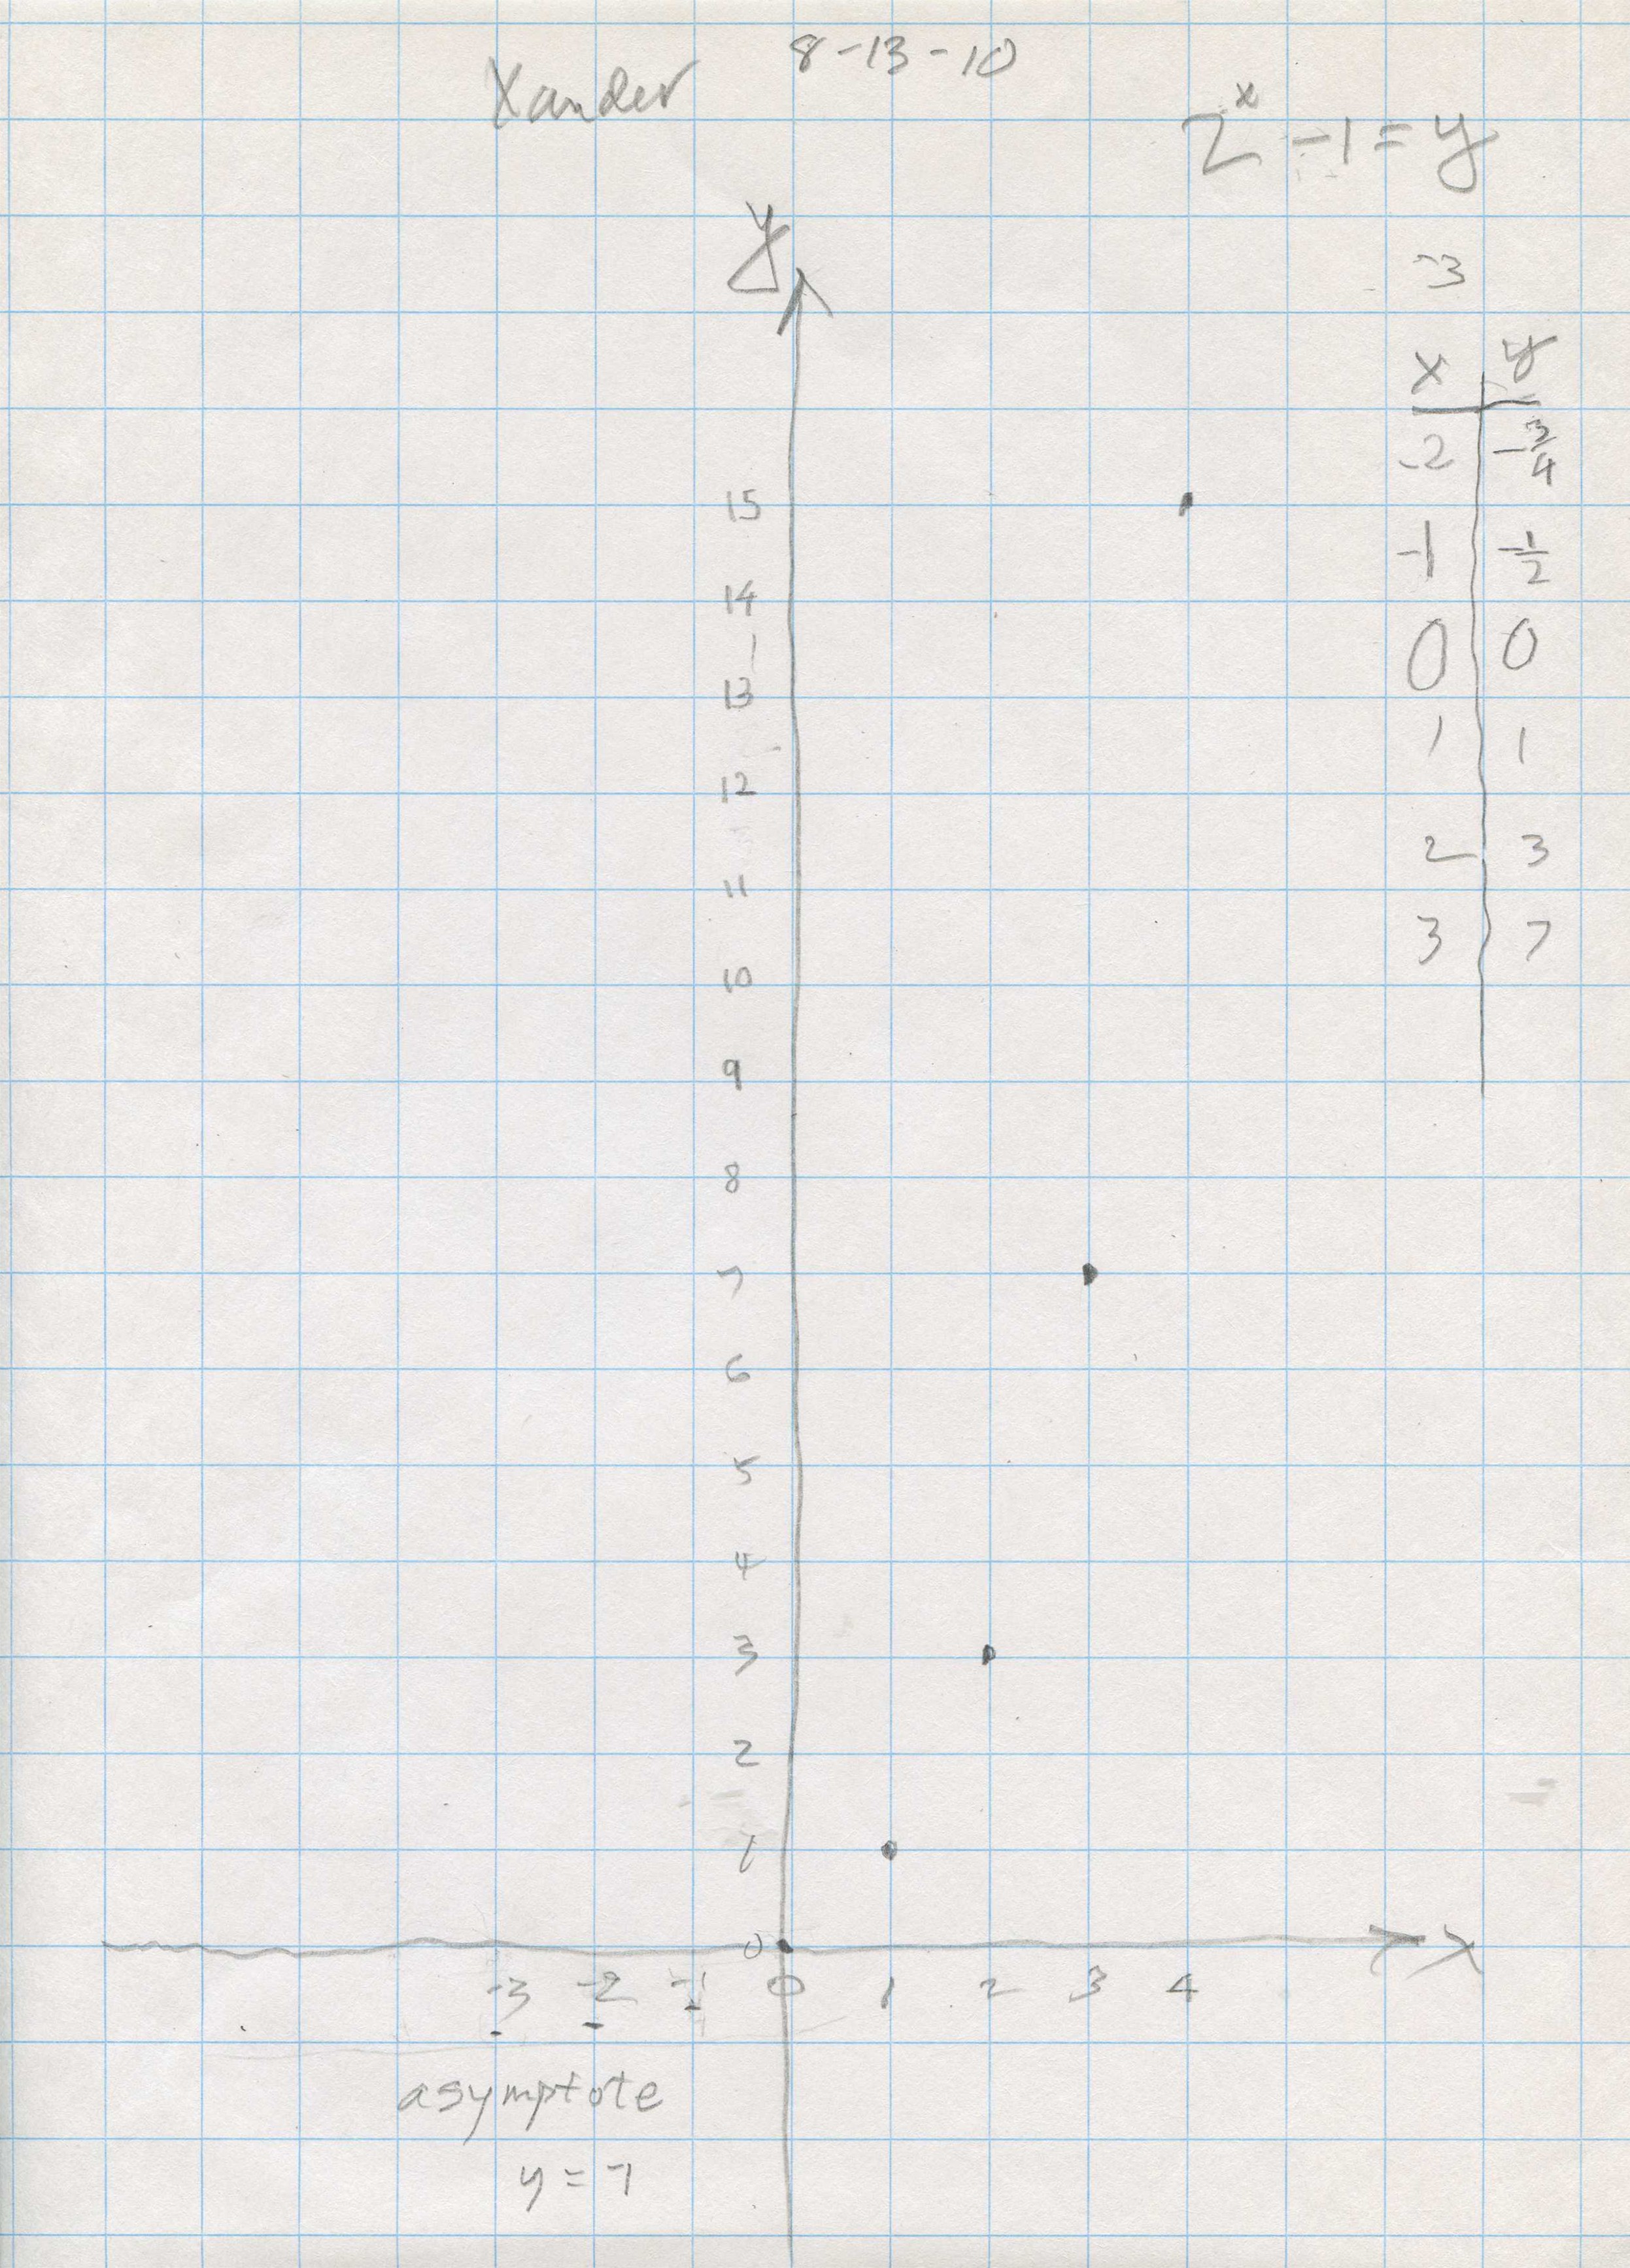 Xander 8-13-10
2ˣ -1 = y
-3
x y
-2 -3/4
-1 -1/2
0 0
1 1
2 3
3 7
y
15
14
1
13
12
11
10
9
8
7
6
5
4
3
2
1
0 x
-3 -2 -1 0 1 2 3 4
asymptote
y = -1